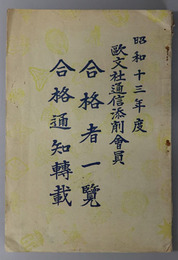 昭和十三年度
欧文社通信添削會員
合格者一覧
合格通知轉載